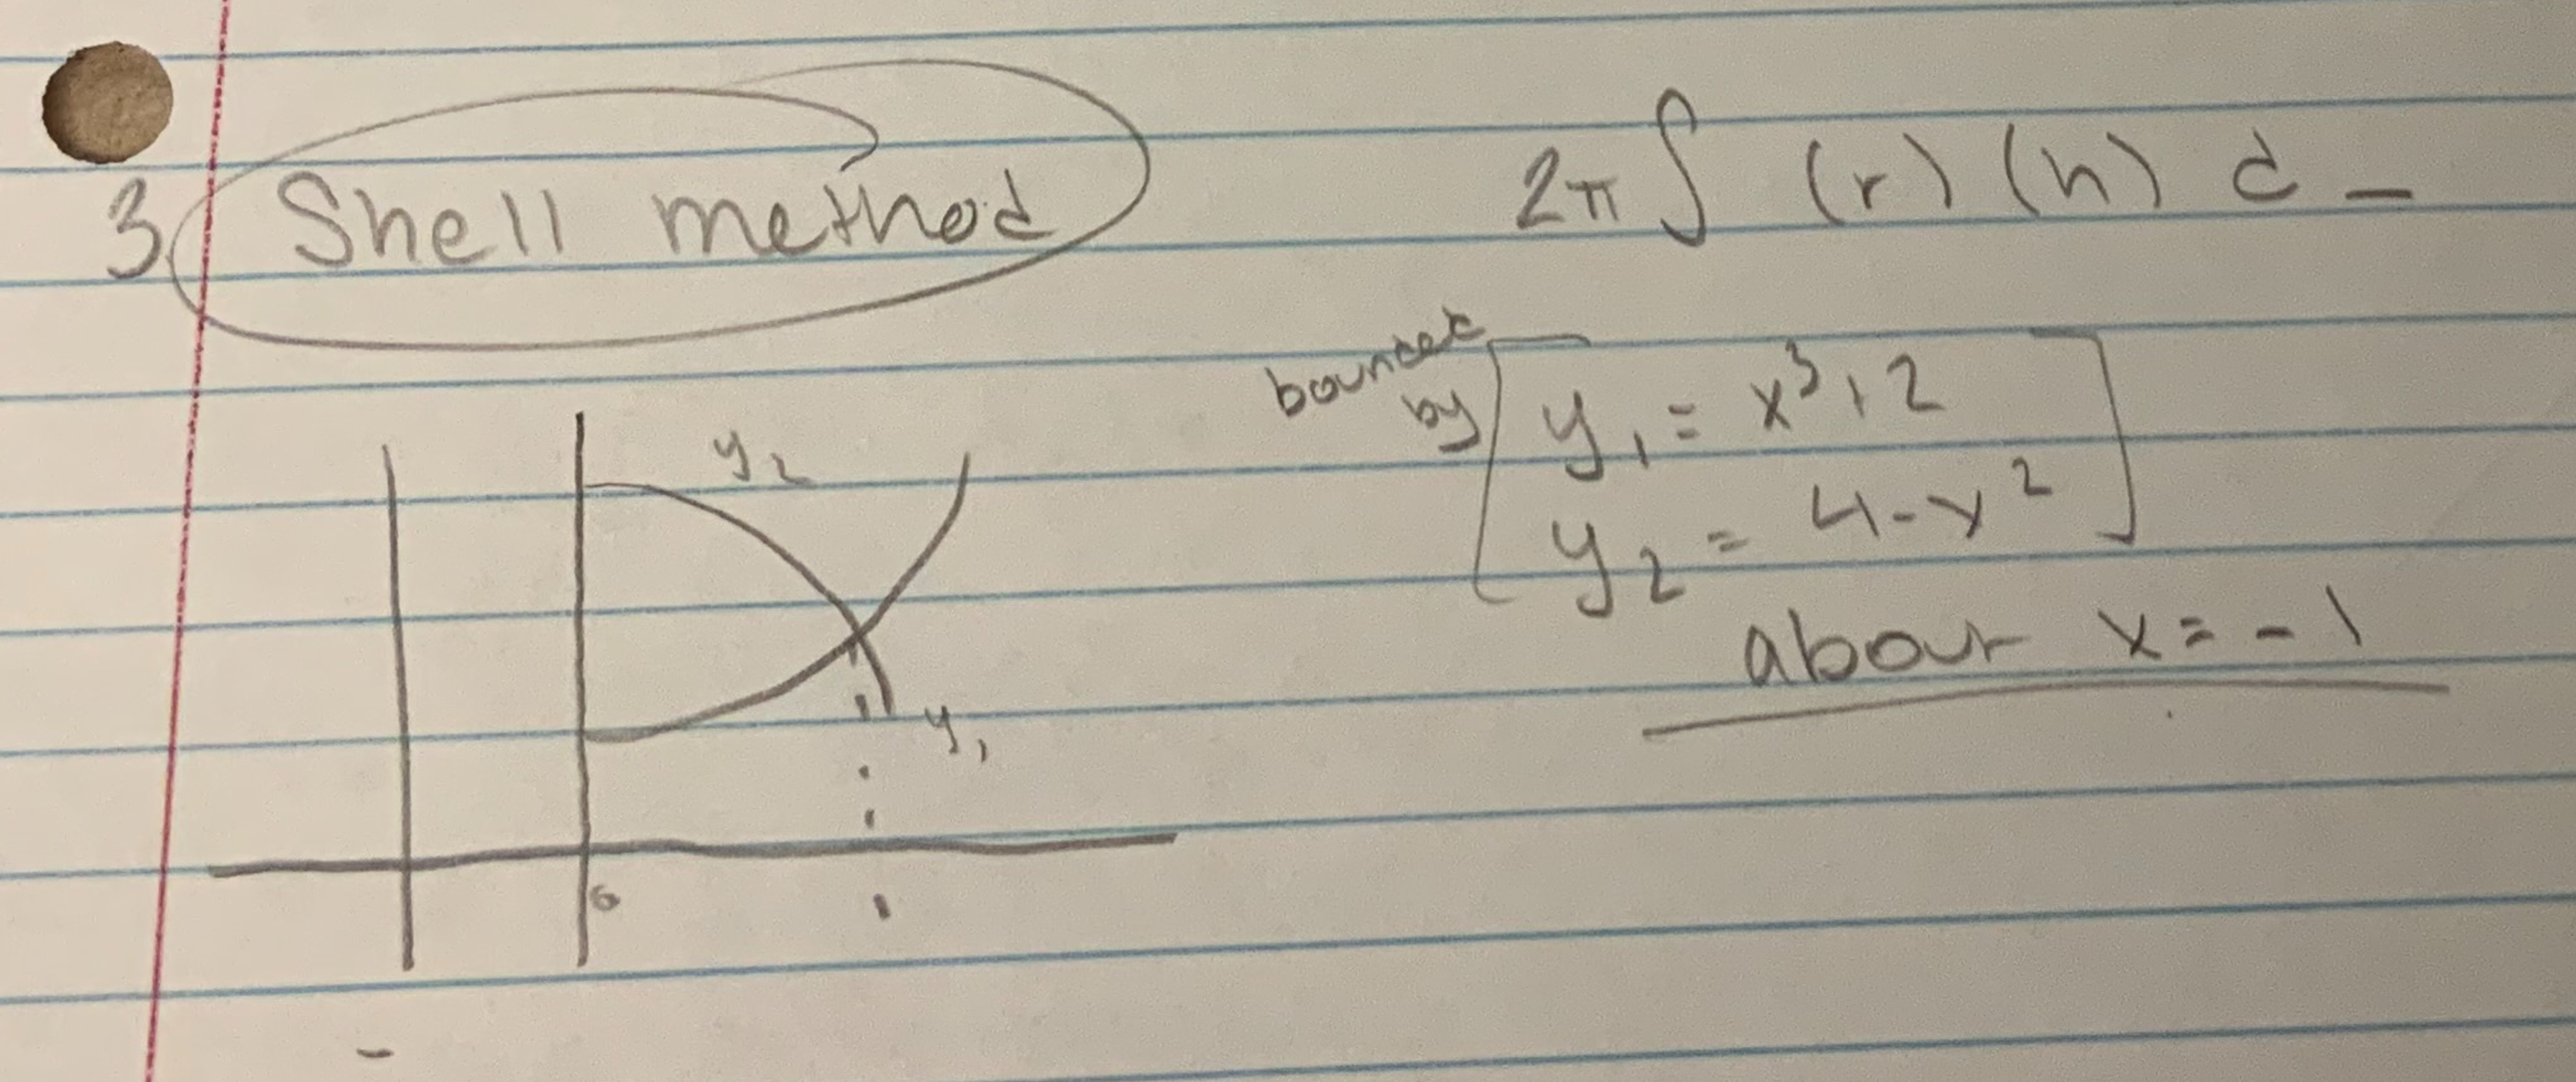 3 Shell method
2π∫ (r) (h) d _
bounded by
y₁ = x³+2
y₂ = 4-x²
about x = -1
y₂
y₁
0 1